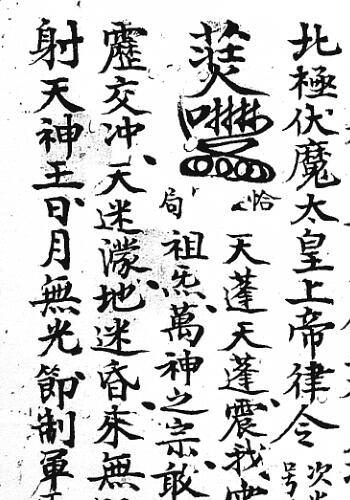 北極伏魔太皇上帝律令
次
号
恰
天蓬天蓬震我
局
祖炁萬神之宗敢
靂交冲天迷濛地迷昏來無
射天神王日月無光節制軍